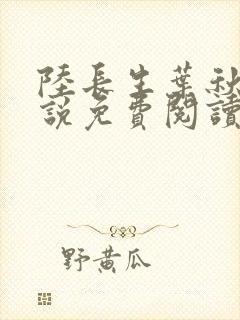 陸長生葉秋
說免費閱讀
野黃瓜